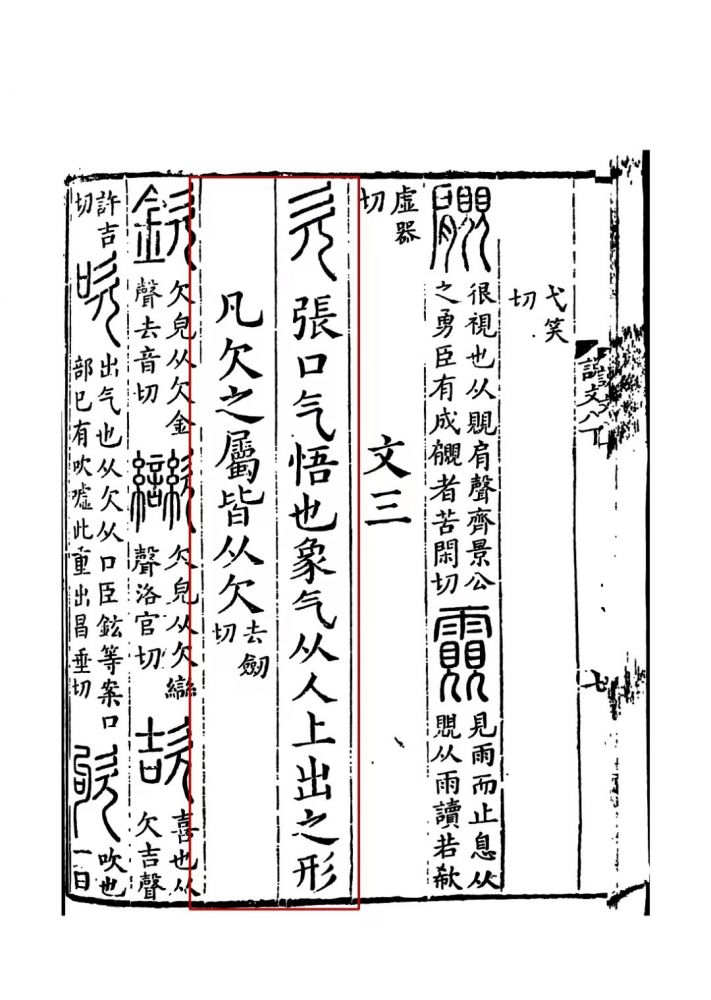 說文八下
七
弋笑
切
覸
很視也从覞肩聲齊景公
之勇臣有成覸者苦閑切
靦
見雨而止息从
覞从雨讀若欷
虛器
切
文三
欠
張口气悟也象气从人上出之形
凡欠之屬皆从欠
去劒
切
欽
欠皃从欠金
聲去音切
欠皃从欠䜌
聲洛官切
欯
喜也从
欠吉聲
許吉
切
吹
出气也从欠从口臣鉉等案口
部已有吹噓此重出昌垂切
欨
吹也
一曰